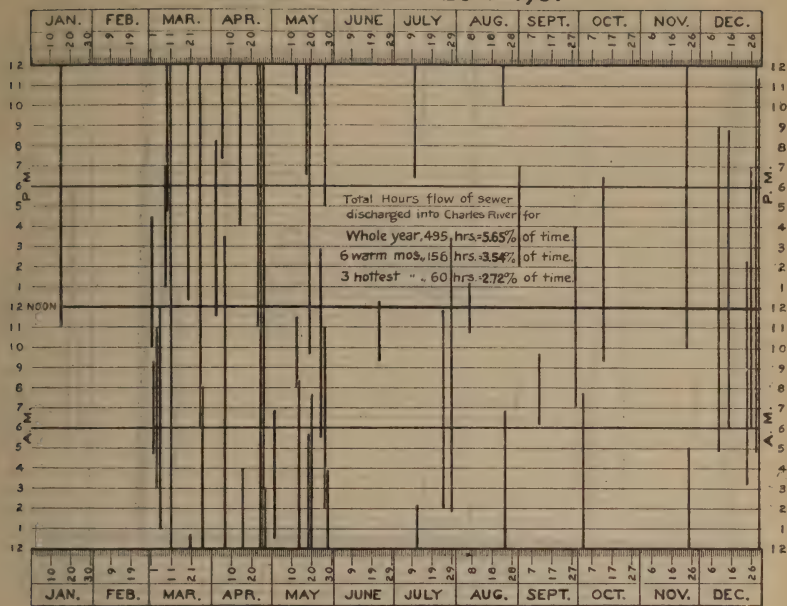 JAN. FEB. MAR. APR. MAY JUNE JULY AUG. SEPT. OCT. NOV. DEC.
10 20 30 9 19 1 11 21 10 20 10 20 30 9 19 29 9 19 29 8 18 28 7 17 27 7 17 27 6 16 26 6 16 26
12 12
11 11
10 10
9 9
8 8
7 7
6 6
P.M. P.M.
5 5
4 4
3 3
2 2
1 1
12 NOON 12
11 11
10 10
9 9
8 8
7 7
6 6
A.M. A.M.
5 5
4 4
3 3
2 2
1 1
12 12
Total Hours flow of sewer
discharged into Charles River for
Whole year, 495 hrs.=5.65% of time.
6 warm mos., 156 hrs.=3.54% of time.
3 hottest " ., 60 hrs.=2.72% of time.
10 20 30 9 19 1 11 21 10 20 10 20 30 9 19 29 9 19 29 8 18 28 7 17 27 7 17 27 6 16 26 6 16 26
JAN. FEB. MAR. APR. MAY JUNE JULY AUG. SEPT. OCT. NOV. DEC.